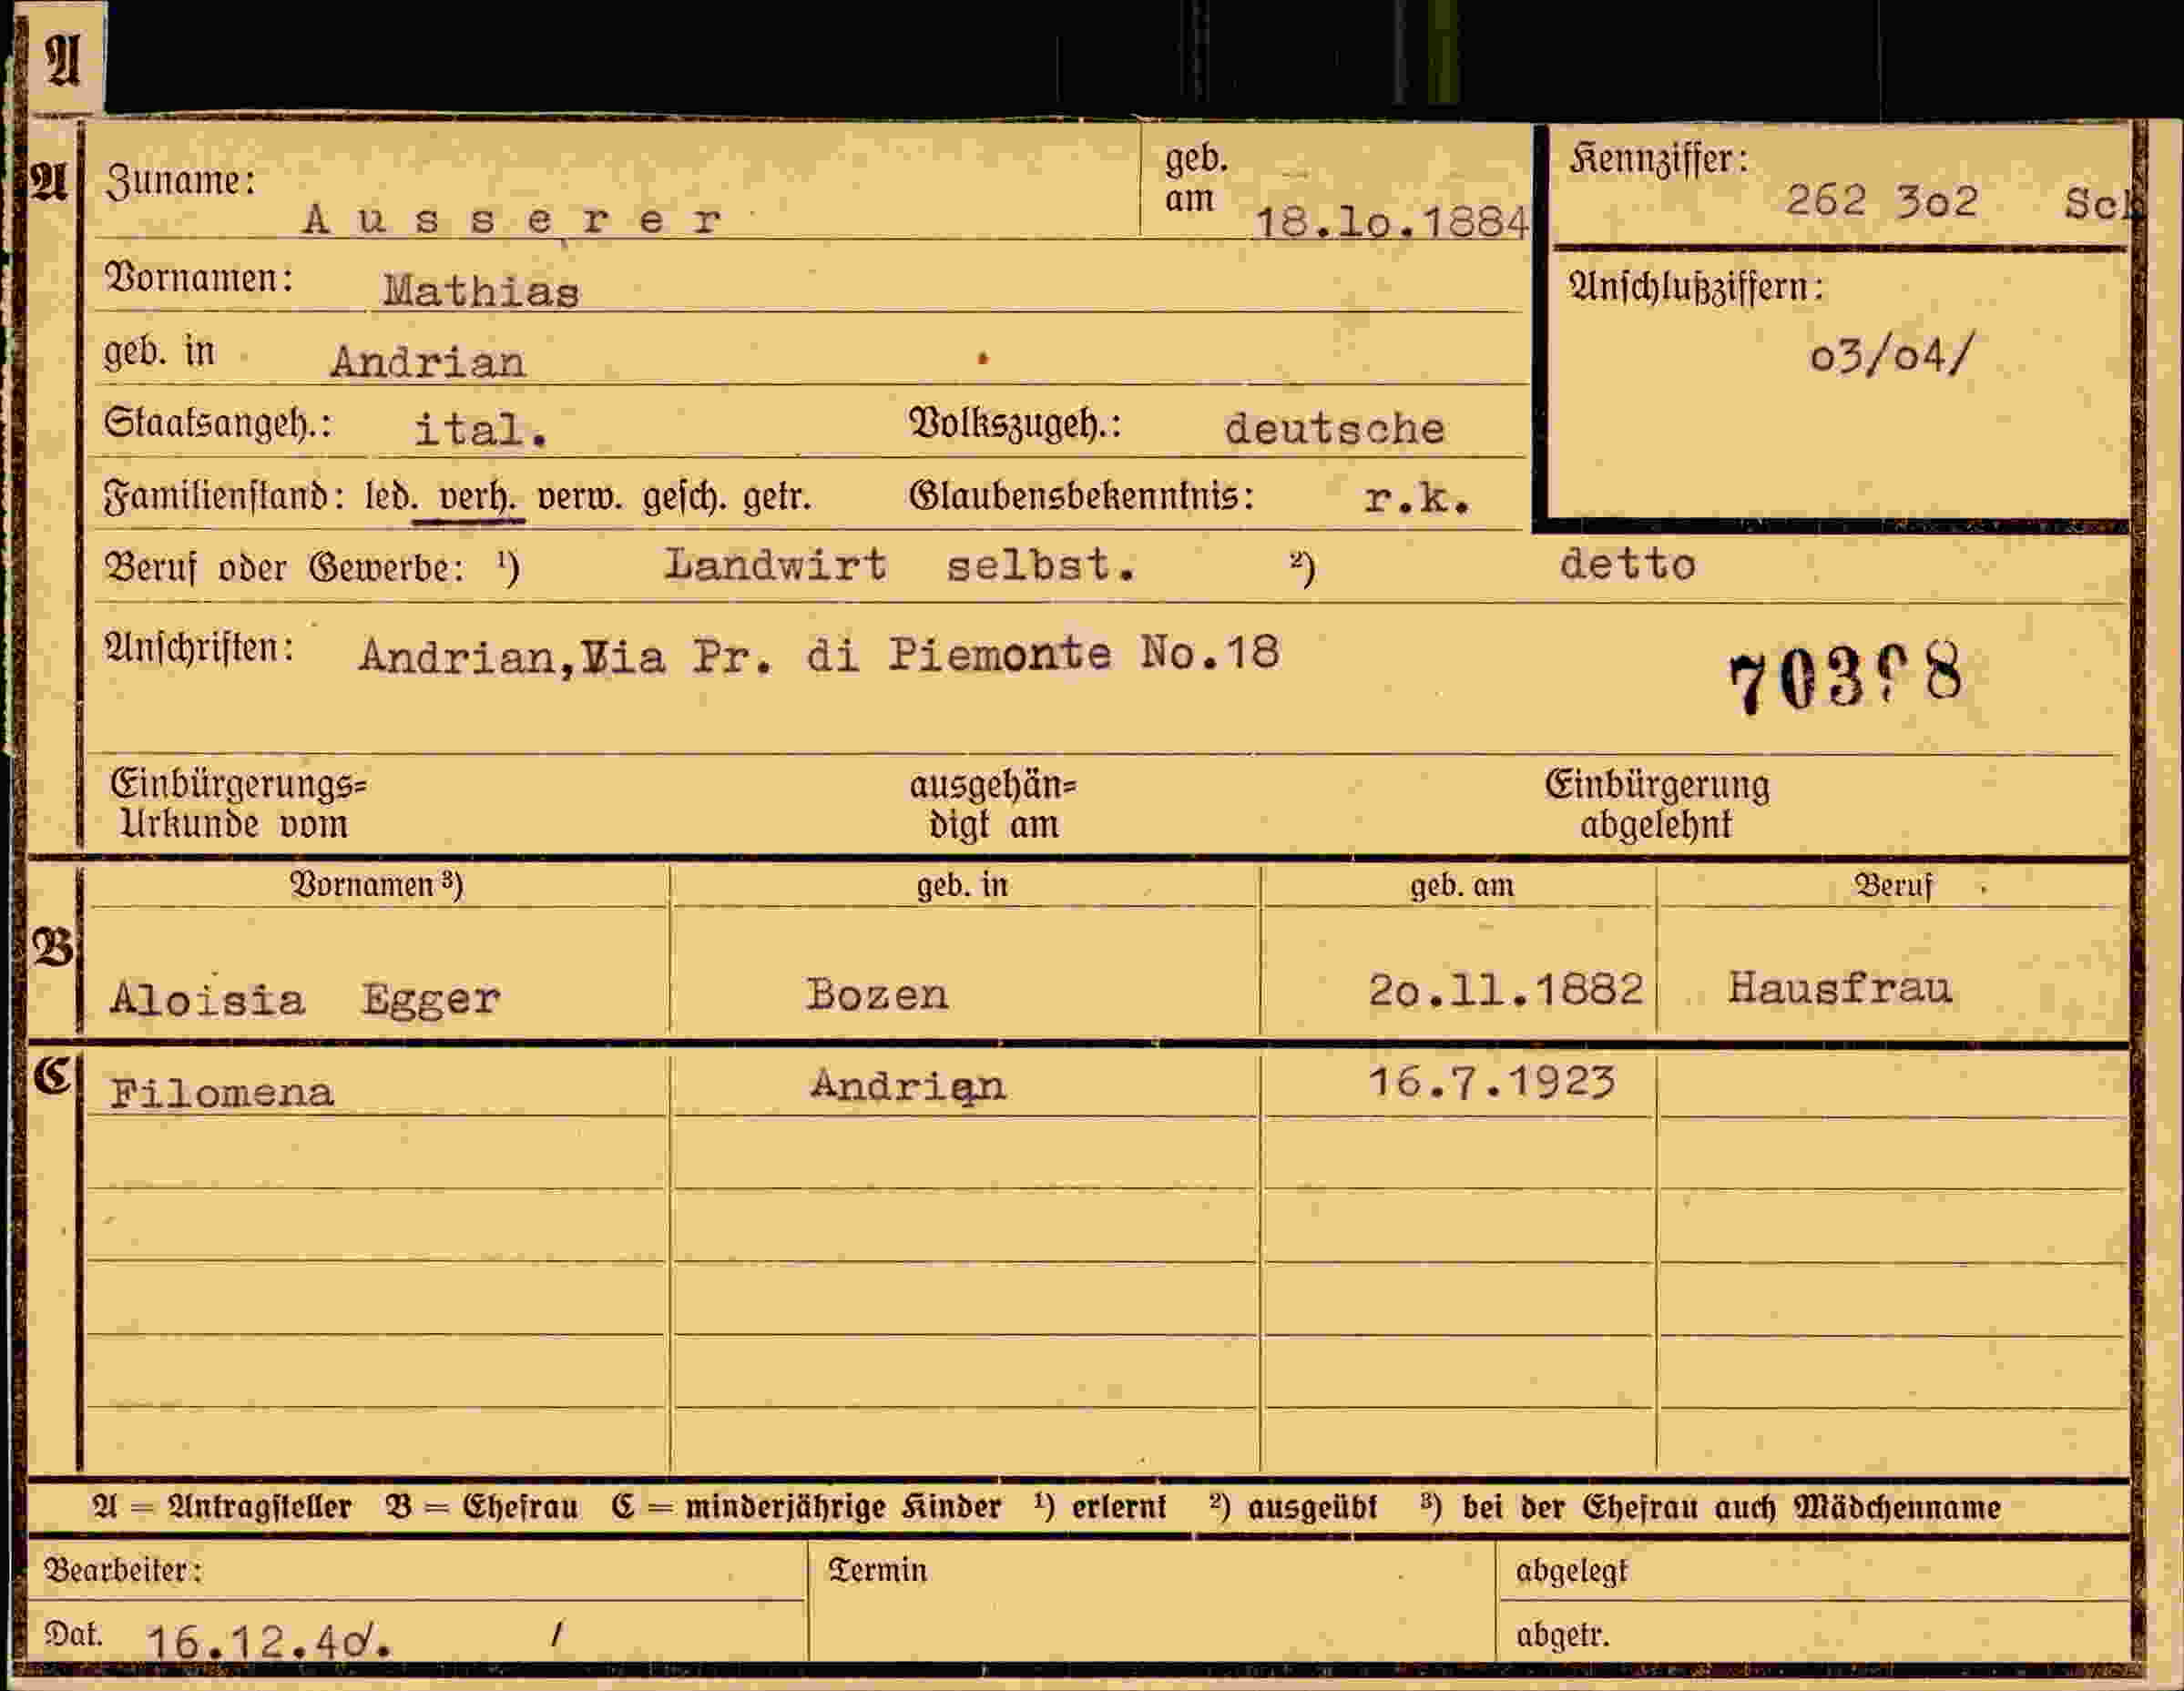 A
A Zuname: Ausserer geb. am 18.lo.1884 Kennziffer: 262 3o2 Sch
Vornamen: Mathias Anschlußziffern:
geb. in Andrian o3/o4/
Staatsangeh.: ital. Volkszugeh.: deutsche
Familienstand: led. verh. verw. gesch. getr. Glaubensbekenntnis: r.k.
Beruf oder Gewerbe: ¹) Landwirt selbst. ²) detto
Anschriften: Andrian,Via Pr. di Piemonte No.18
Einbürgerungs= ausgehän= Einbürgerung
Urkunde vom digt am abgelehnt
Vornamen ³) geb. in geb. am Beruf
B Aloisia Egger Bozen 2o.11.1882 Hausfrau
C Filomena Andrian 16.7.1923
A = Antragsteller B = Ehefrau C = minderjährige Kinder ¹) erlernt ²) ausgeübt ³) bei der Ehefrau auch Mädchenname
Bearbeiter: Termin abgelegt
Dat. 16.12.4o/. / abgetr.